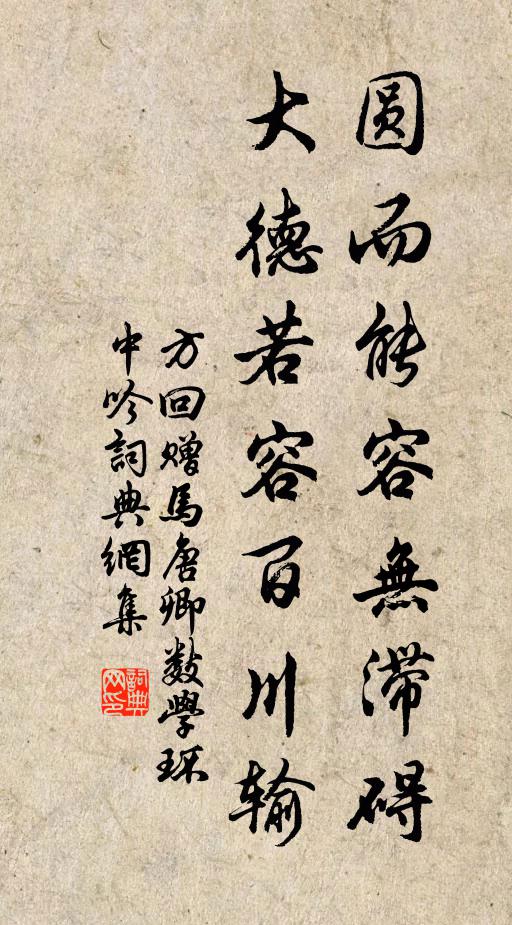 圓而能容無滯碍
大德若容百川輸
方回贈馬唐卿數學環
中吟詞典網集
詞典网印